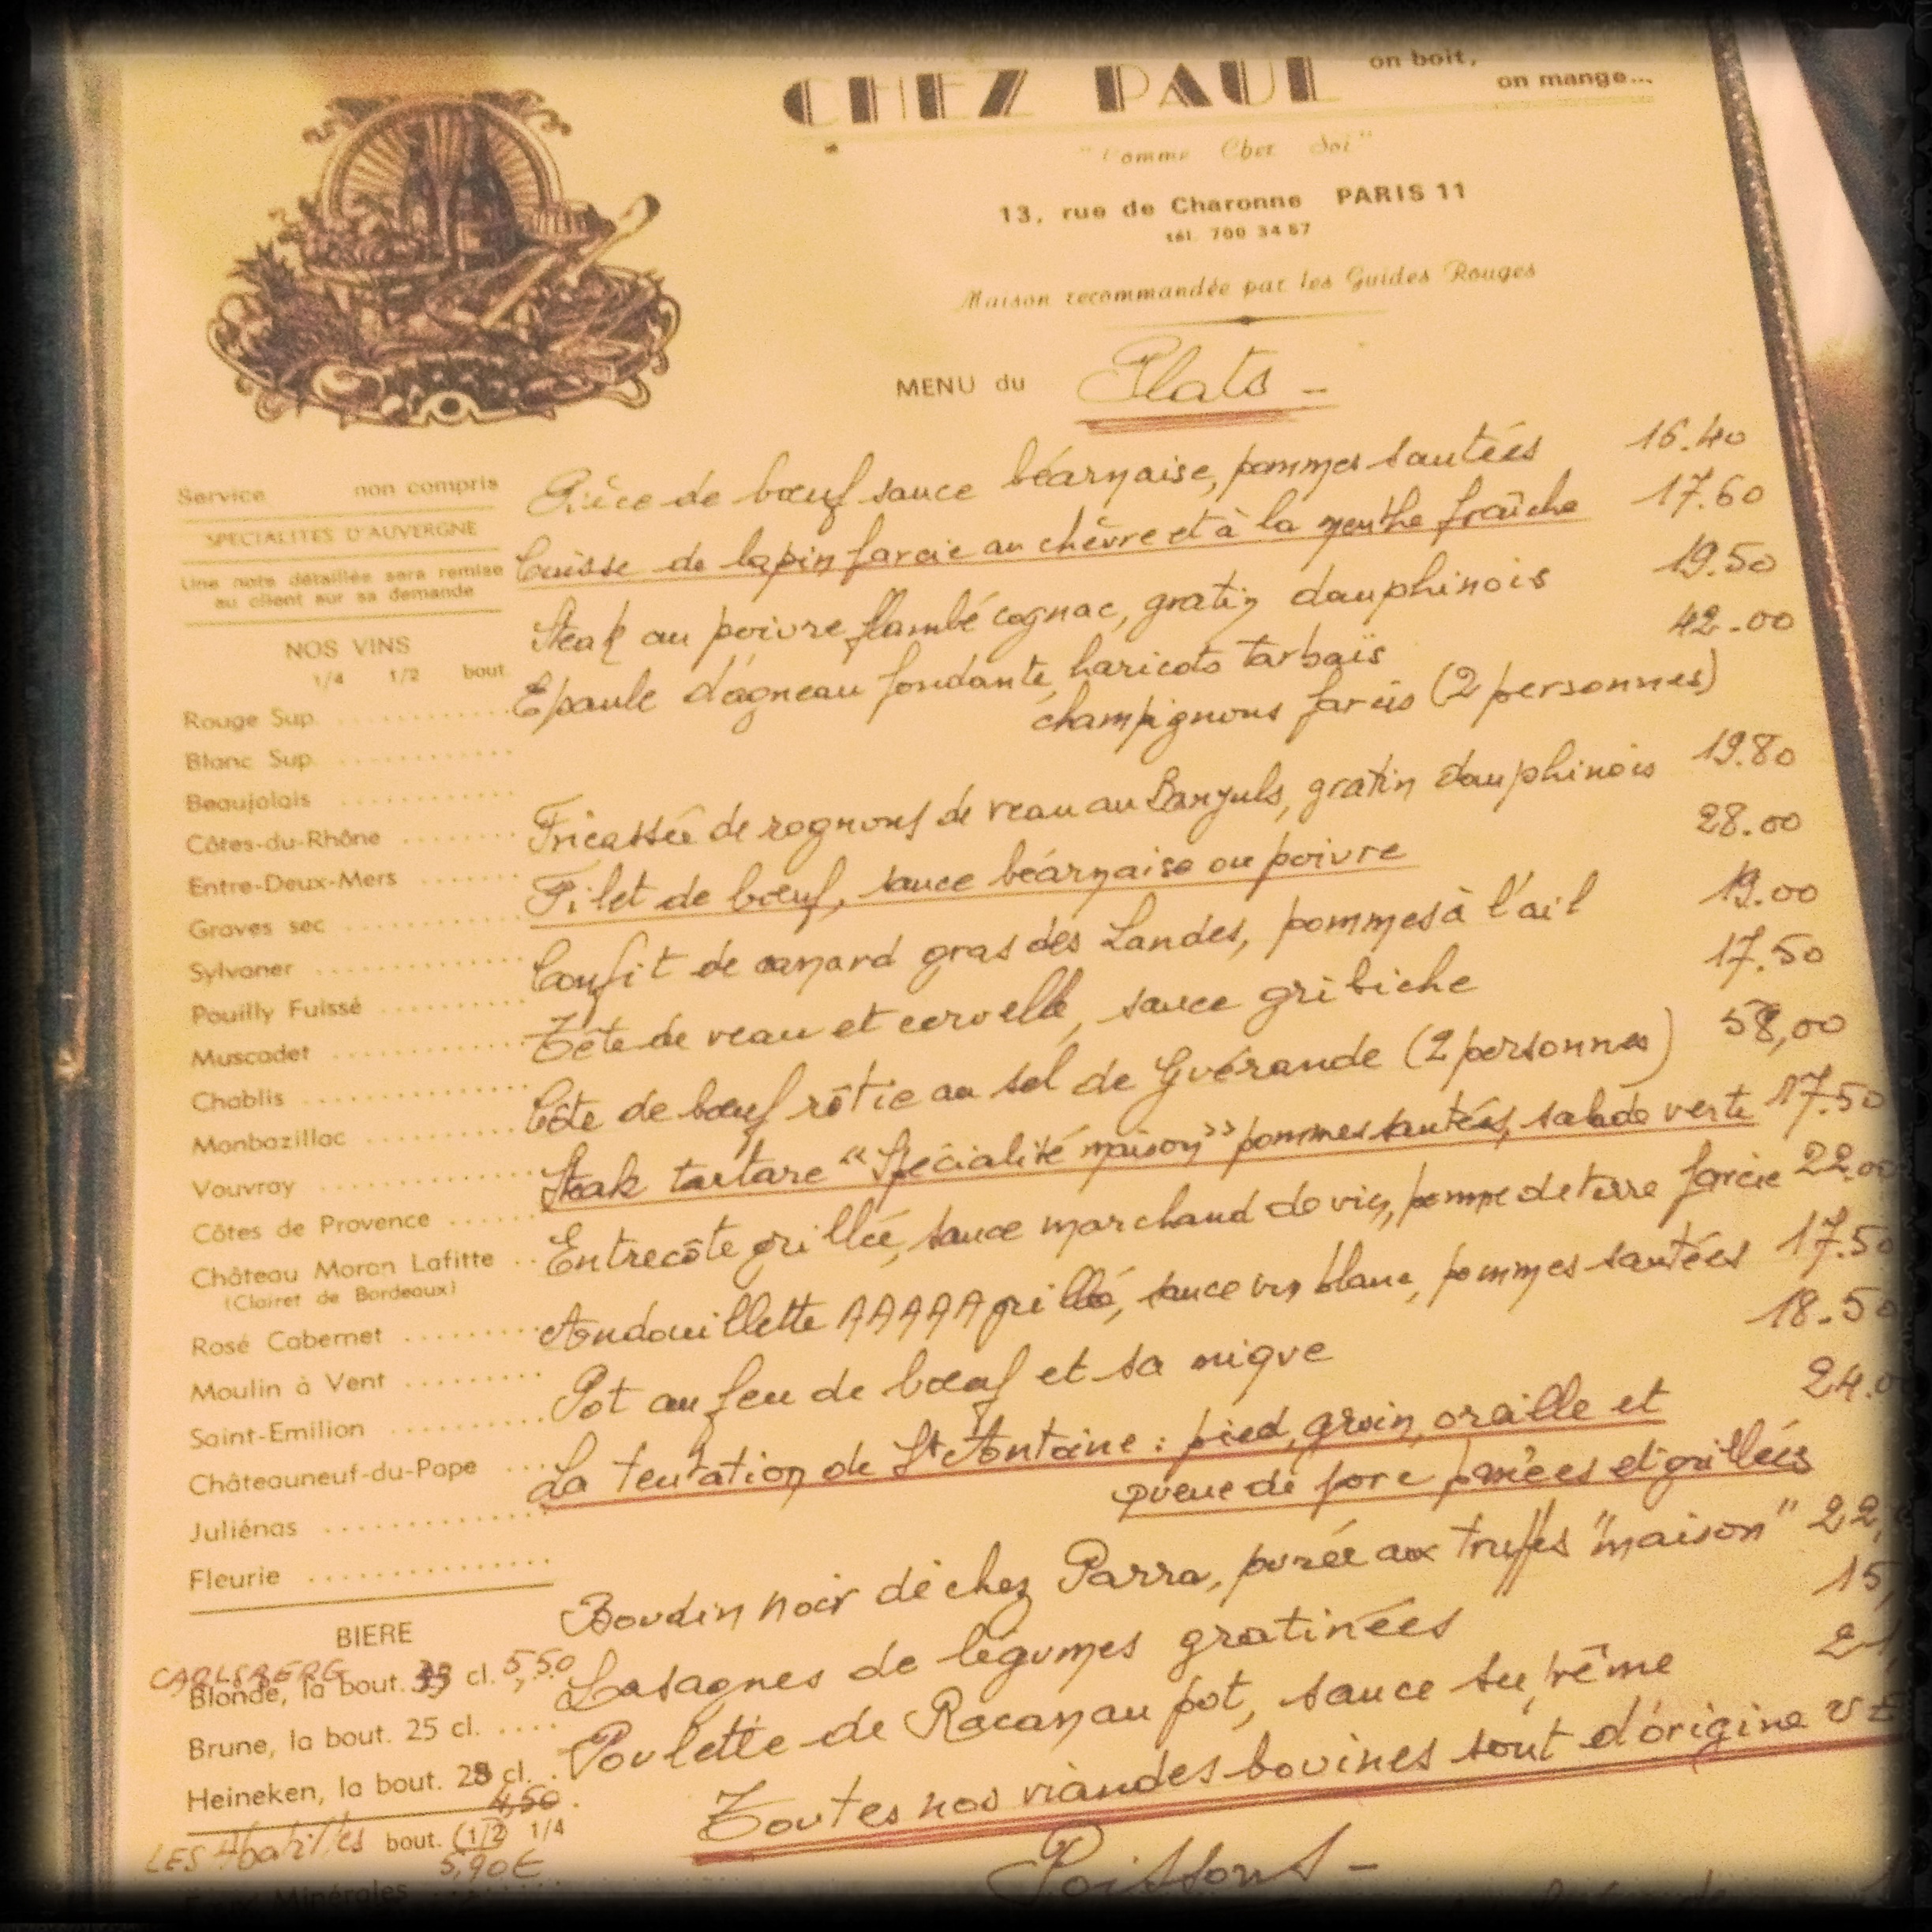 CHEZ PAUL
on boit,
on mange...
"Comme Chez Soi"
13, rue de Charonne PARIS 11
tél. 700 34 57
Maison recommandée par les Guides Rouges
MENU du Plats -
Service non compris
SPECIALITES D'AUVERGNE
Une note détaillée sera remise
au client sur sa demande
NOS VINS
1/4 1/2 bout.
Rouge Sup.
Blanc Sup.
Beaujolais
Côtes-du-Rhône
Entre-Deux-Mers
Graves sec
Sylvaner
Pouilly Fuissé
Muscadet
Chablis
Monbazillac
Vouvray
Côtes de Provence
Château Moron Lafitte
(Clairet de Bordeaux)
Rosé Cabernet
Moulin à Vent
Saint-Emilion
Châteauneuf-du-Pape
Juliénas
Fleurie
BIERE
CARLSBERG
Blonde, la bout. 33 cl. 5,50
Brune, la bout. 25 cl.
Heineken, la bout. 25 cl.
4,50
LES Abatilles bout. (1/2) 1/4
5,90€
Minérales
Pièce de bœuf sauce béarnaise, pommes sautées 16.40
Cuisse de lapin farcie au chèvre et à la menthe fraîche 17.60
Steak au poivre flambé cognac, gratin dauphinois 19.50
Epaule d'agneau fondante, haricots tarbais 42.00
champignons farcis (2 personnes)
Fricassée de rognons de veau au Banyuls, gratin dauphinois 19.80
Filet de bœuf, sauce béarnaise ou poivre 28.00
Confit de canard gras des Landes, pommes à l'ail 19.00
Tête de veau et cervelle, sauce gribiche 17.50
Côte de bœuf rôtie au sel de Guérande (2 personnes) 58,00
Steak tartare "Spécialité maison" pommes sautées, salade verte 17.50
Entrecôte grillée, sauce marchand de vin, pomme de terre farcie 22.00
Andouillette AAAAA grillée, sauce vin blanc, pommes sautées 17.50
Pot au feu de bœuf et sa nique 18.50
La tentation de St Antoine : pied, groin, oreille et 24.0
queue de porc panées et grillées
Boudin noir de chez Parra, purée aux truffes "maison" 22,
Lasagnes de légumes gratinées 15,
Poulette de Racan au pot, sauce suprême 21,
Toutes nos viandes bovines sont d'origine
Poissons -